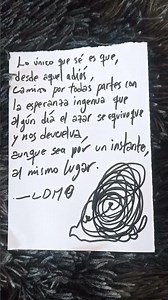 Lo único que sé es que,
desde aquel adiós,
camino por todas partes con
la esperanza ingenua que
algún día el azar se equivoque
y nos devuelva,
aunque sea por un instante,
al mismo lugar.
—LDM